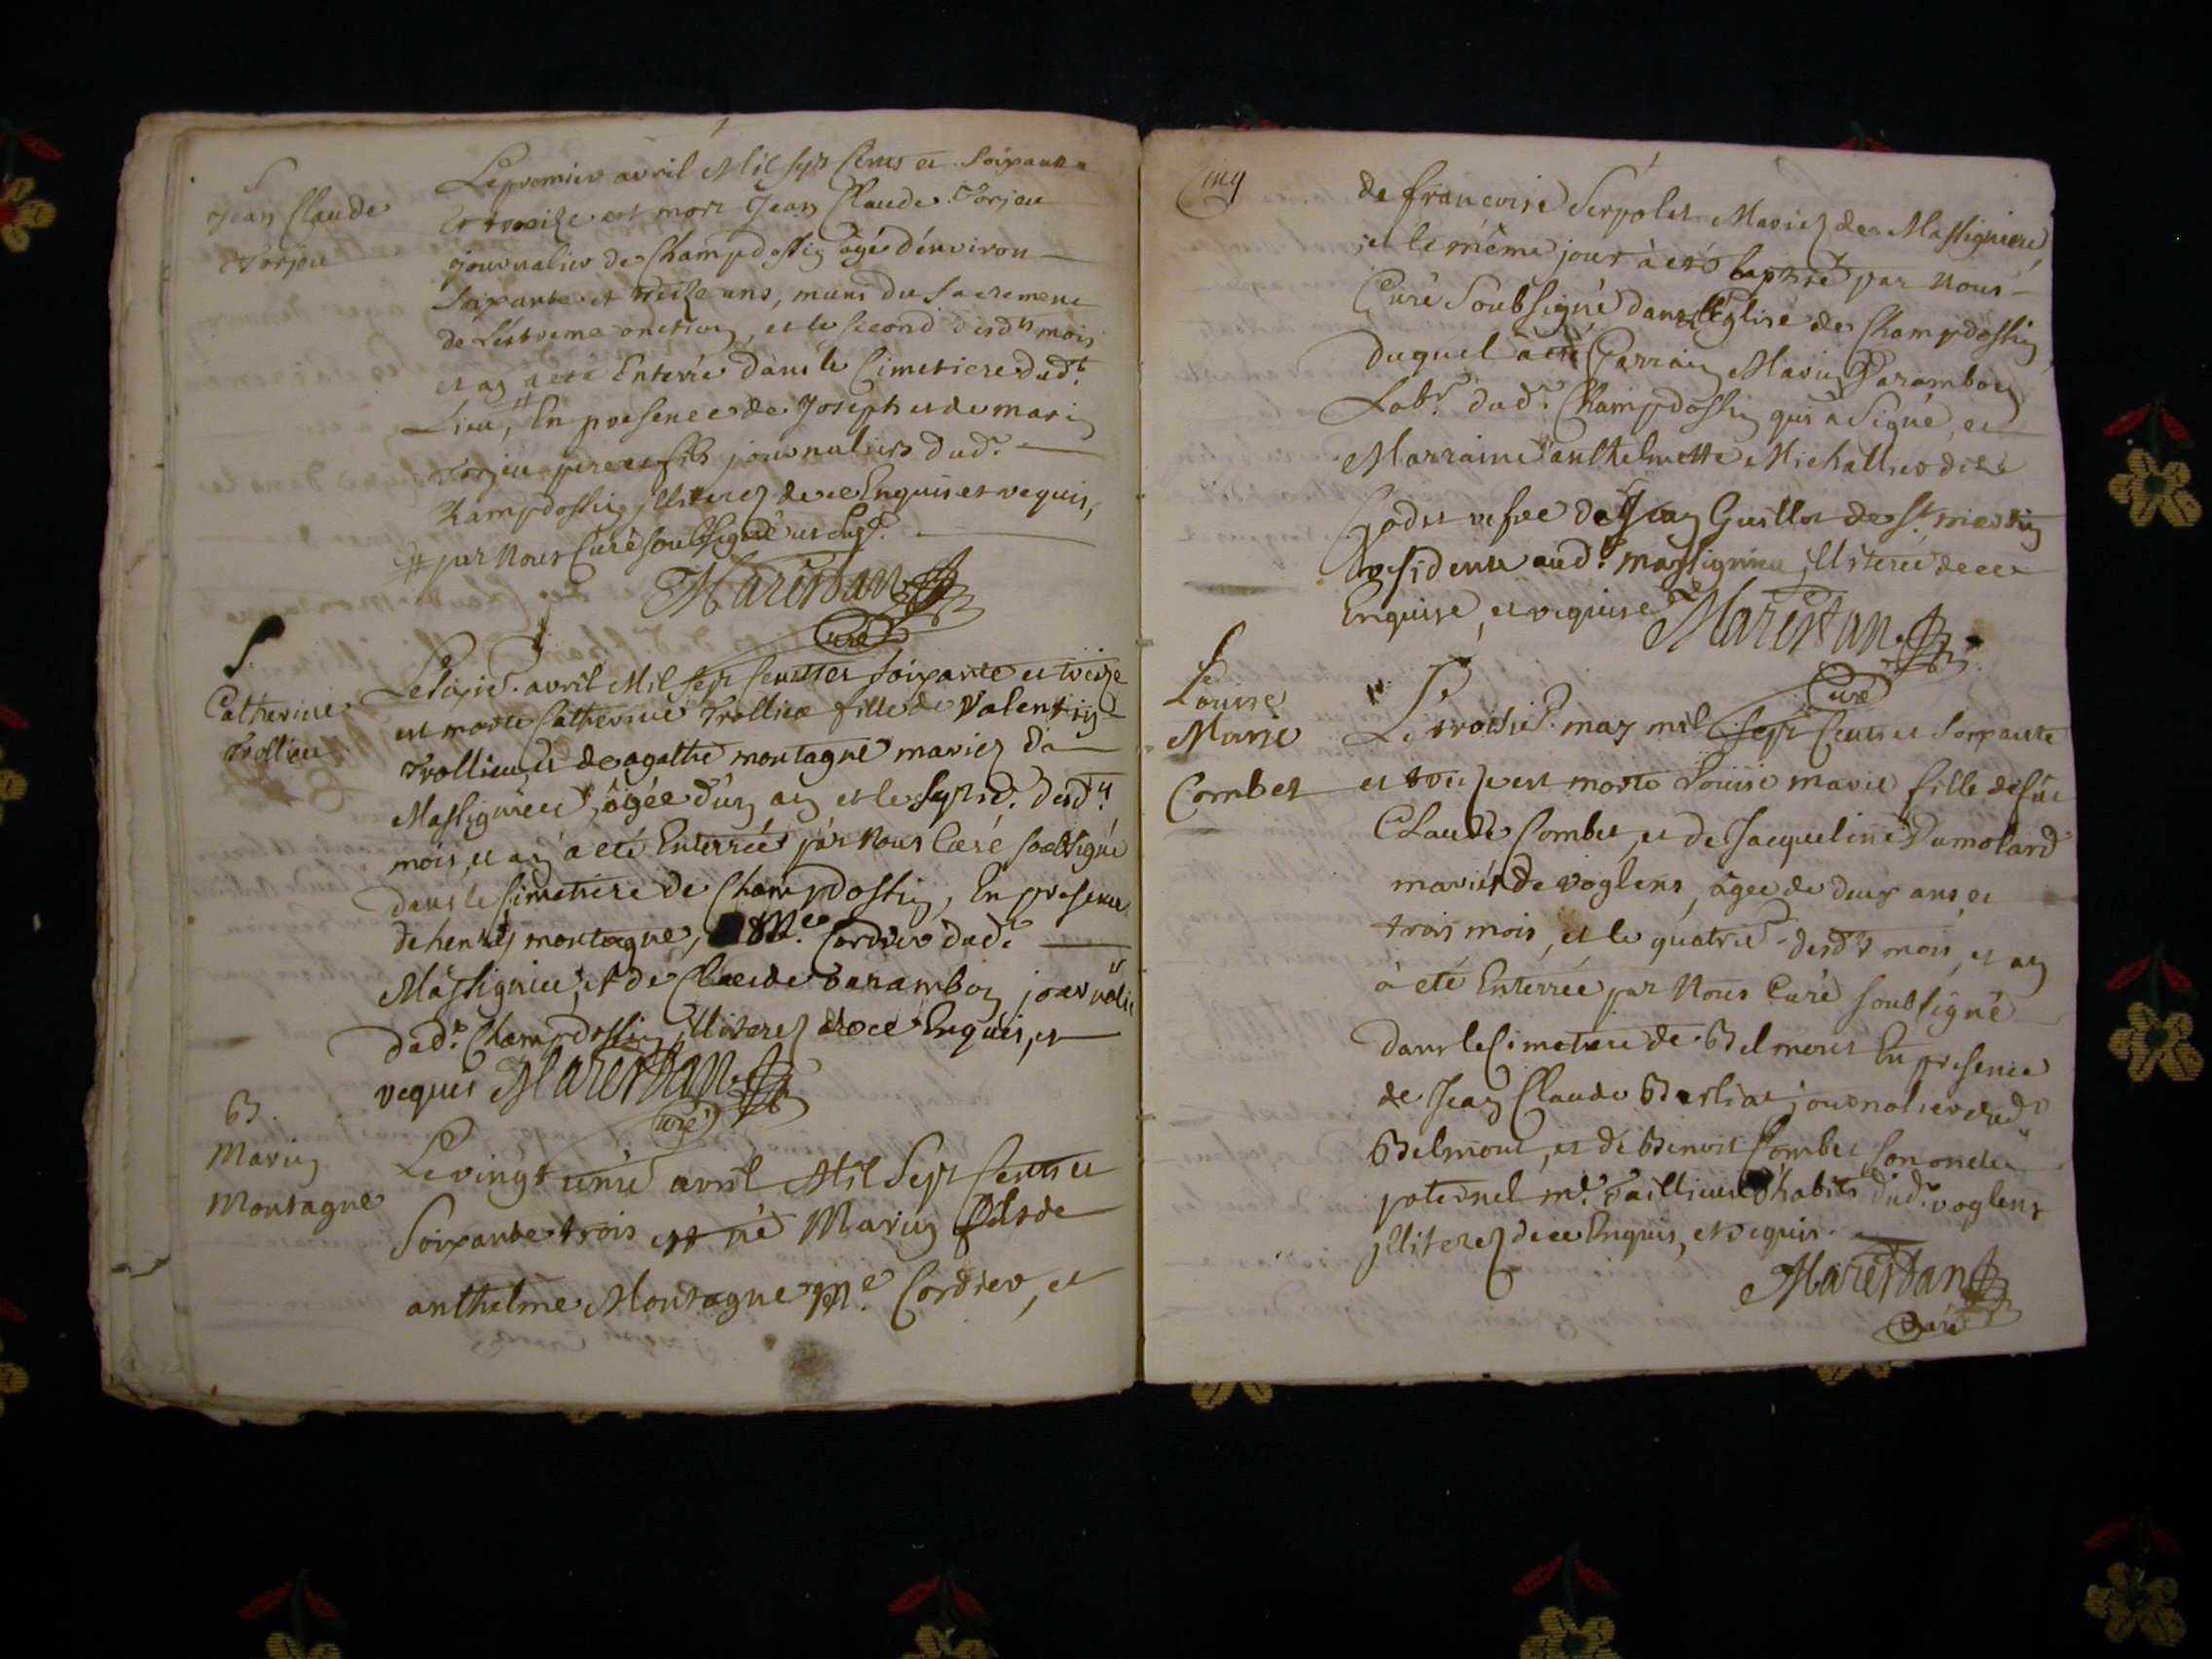 S
Jean Claude
Torjeu
Le premier avril Mil sept Cents et Soixante
Et treize est mort Jean Claude Torjeu
journalier de Champdossin âgé d'environ
soixante et treize ans, muni du Sacrement
de L'extreme onction, et le second desdts mois
et an a eté Enterré dans le Cimetiere dudt.
Lieu, # En presence de Joseph et de marin
Torjeu pere et fils journaliers dudt.
Champdossin jlliterez de ce Enquis et requis,
# par Nous Curé soubsigné
Marestan
Curé
S
Catherine
Trollieu
Le sixie. avril Mil sept Cents et soixante et treize
est morte Catherine Trollieu fille de Valentin
Trollieu, et de agathe montagne mariez dà
Massignieu, âgée d'un an et le septie. desdts
mois, et an à eté Enterrée par Nous Curé soubsigné
dans le Cimetiere de Champdossin, En presence
de henry montagne, Me. Cordier dudt
Massignieu, et de Claude Paramboy journalie
dudt. Champdossin jlliterez de ce Enquis, et
requis Marestan
Curé
B.
Marin
Montagne
Le vingt unie avril Mil Sept Cents et
Soixante trois est né Marin fils de
anthelme Montagne Me. Cordier, et
Cinq
de francoise Serpolet Mariez de Massignieu,
et le même jour à eté baptisé par Nous
Curé Soubsigné dans L'Eglise de Champdossin
duquel à eté Parrain Marin Paramboy
Labr. dudt. Champdossin qui a Signé, et
Marraine anthelmette Michallier dite
Godet vefve de Jean Guillot de St. martin
residente audt. massignieu, jlliterée de ce
Enquise, et requise Marestan
Curé
S
Louise
Marie
Combet
Le troisie. may mil sept Cents et soixante
et treize est morte Louise marie fille de fût
Claude Combet, et de Jacqueline Dumolard
mariés de voglens, âgée de deux ans et
trois mois, et le quatrie. desdts mois, et an
à eté Enterrée par Nous Curé soubsigné
dans le Cimetiere de Belmont En presence
de Jean Claude Berliat journalier dudt
Belmont, et de Benoit Combet, son oncle
paternel me. Taillieur habits dudt voglens
jlliterez de ce Enquis, et requis.
Marestan
Curé